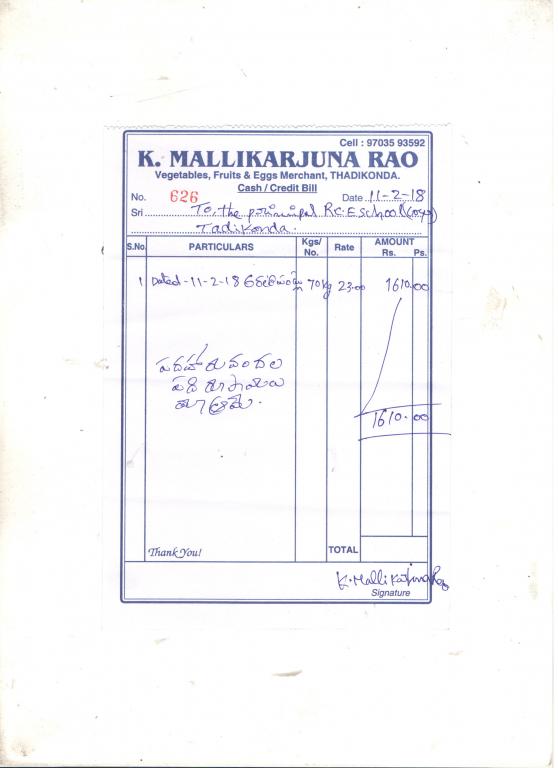 Cell : 97035 93592
K. MALLIKARJUNA RAO
Vegetables, Fruits & Eggs Merchant, THADIKONDA.
Cash / Credit Bill
No. 626 Date 11-2-18
Sri To, the principal R.C.E School
Tadikonda.
S.No. PARTICULARS Kgs/ No. Rate AMOUNT Rs. Ps.
1 Dated - 11-2-18 70 kg 23.00 1610.00
పదహారు వందల
పది రూపాయలు
మాత్రమే.
1610.00
Thank You! TOTAL
K. Mallikarjuna Rao
Signature